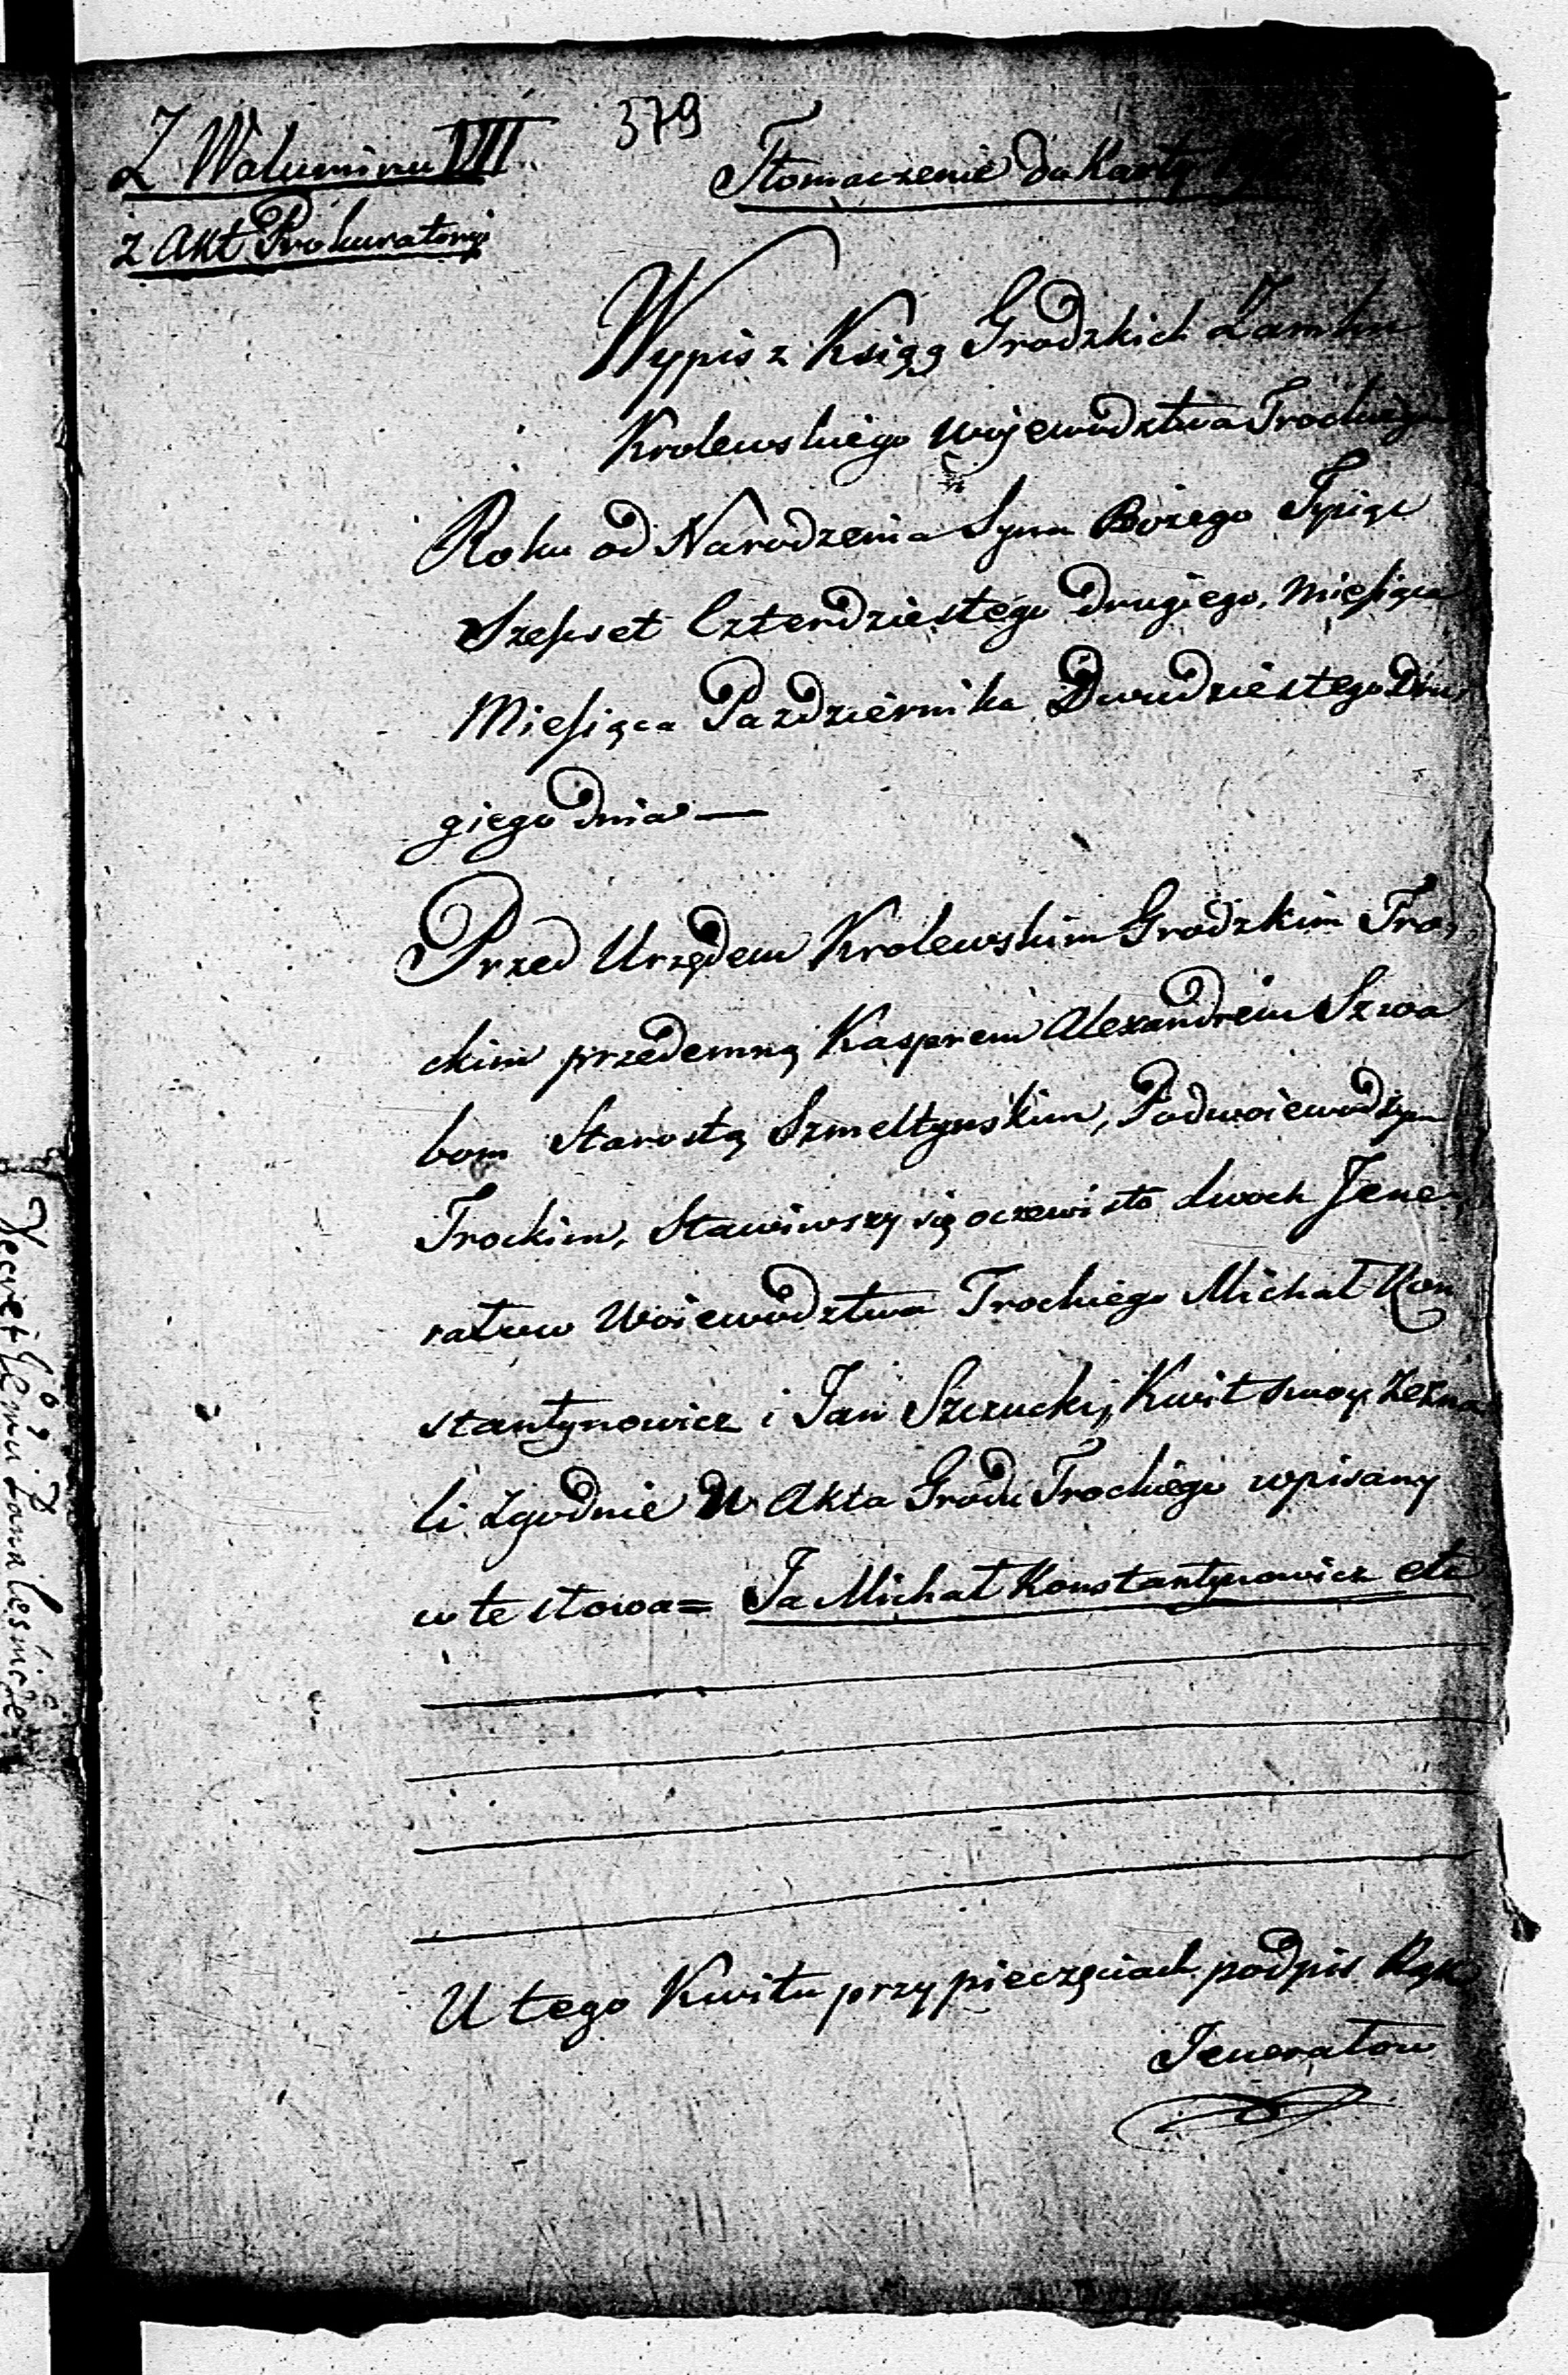 379
Z Woluminu VIII
z Akt Prokuratoryi
Tłomaczenie do Karty
Wypis z Xsiąg Grodzkich Zamku
Krolewskiego Wojewodztwa Trockiego
Roku od Narodzenia Syna Bożego Tysiąc
Szesset Czterdziestego Drugiego, Miesiąca
Miesiąca Pazdziernika Dwudziestego Dru
giego Dnia —
Przed Urzędem Krolewskim Grodzkim Tro,
ckim przedemną Kasprem Alexandrem Szwa
bom Starostą Szmeltynskim, Podwoiewodzym
Trockim, Stawiwszy się oczewisto dwoch Jene,
rałow Woiewodztwa Trockiego Michał Kon
stantynowicz i Jan Szczucki, Kwit swoy zezna
li zgodnie w Akta Grodu Trockiego wpisany
w te słowa = Ja Michał Konstantynowicz etc
U tego Kwitu przy pieczęciach podpis Rąk
Jenerałow